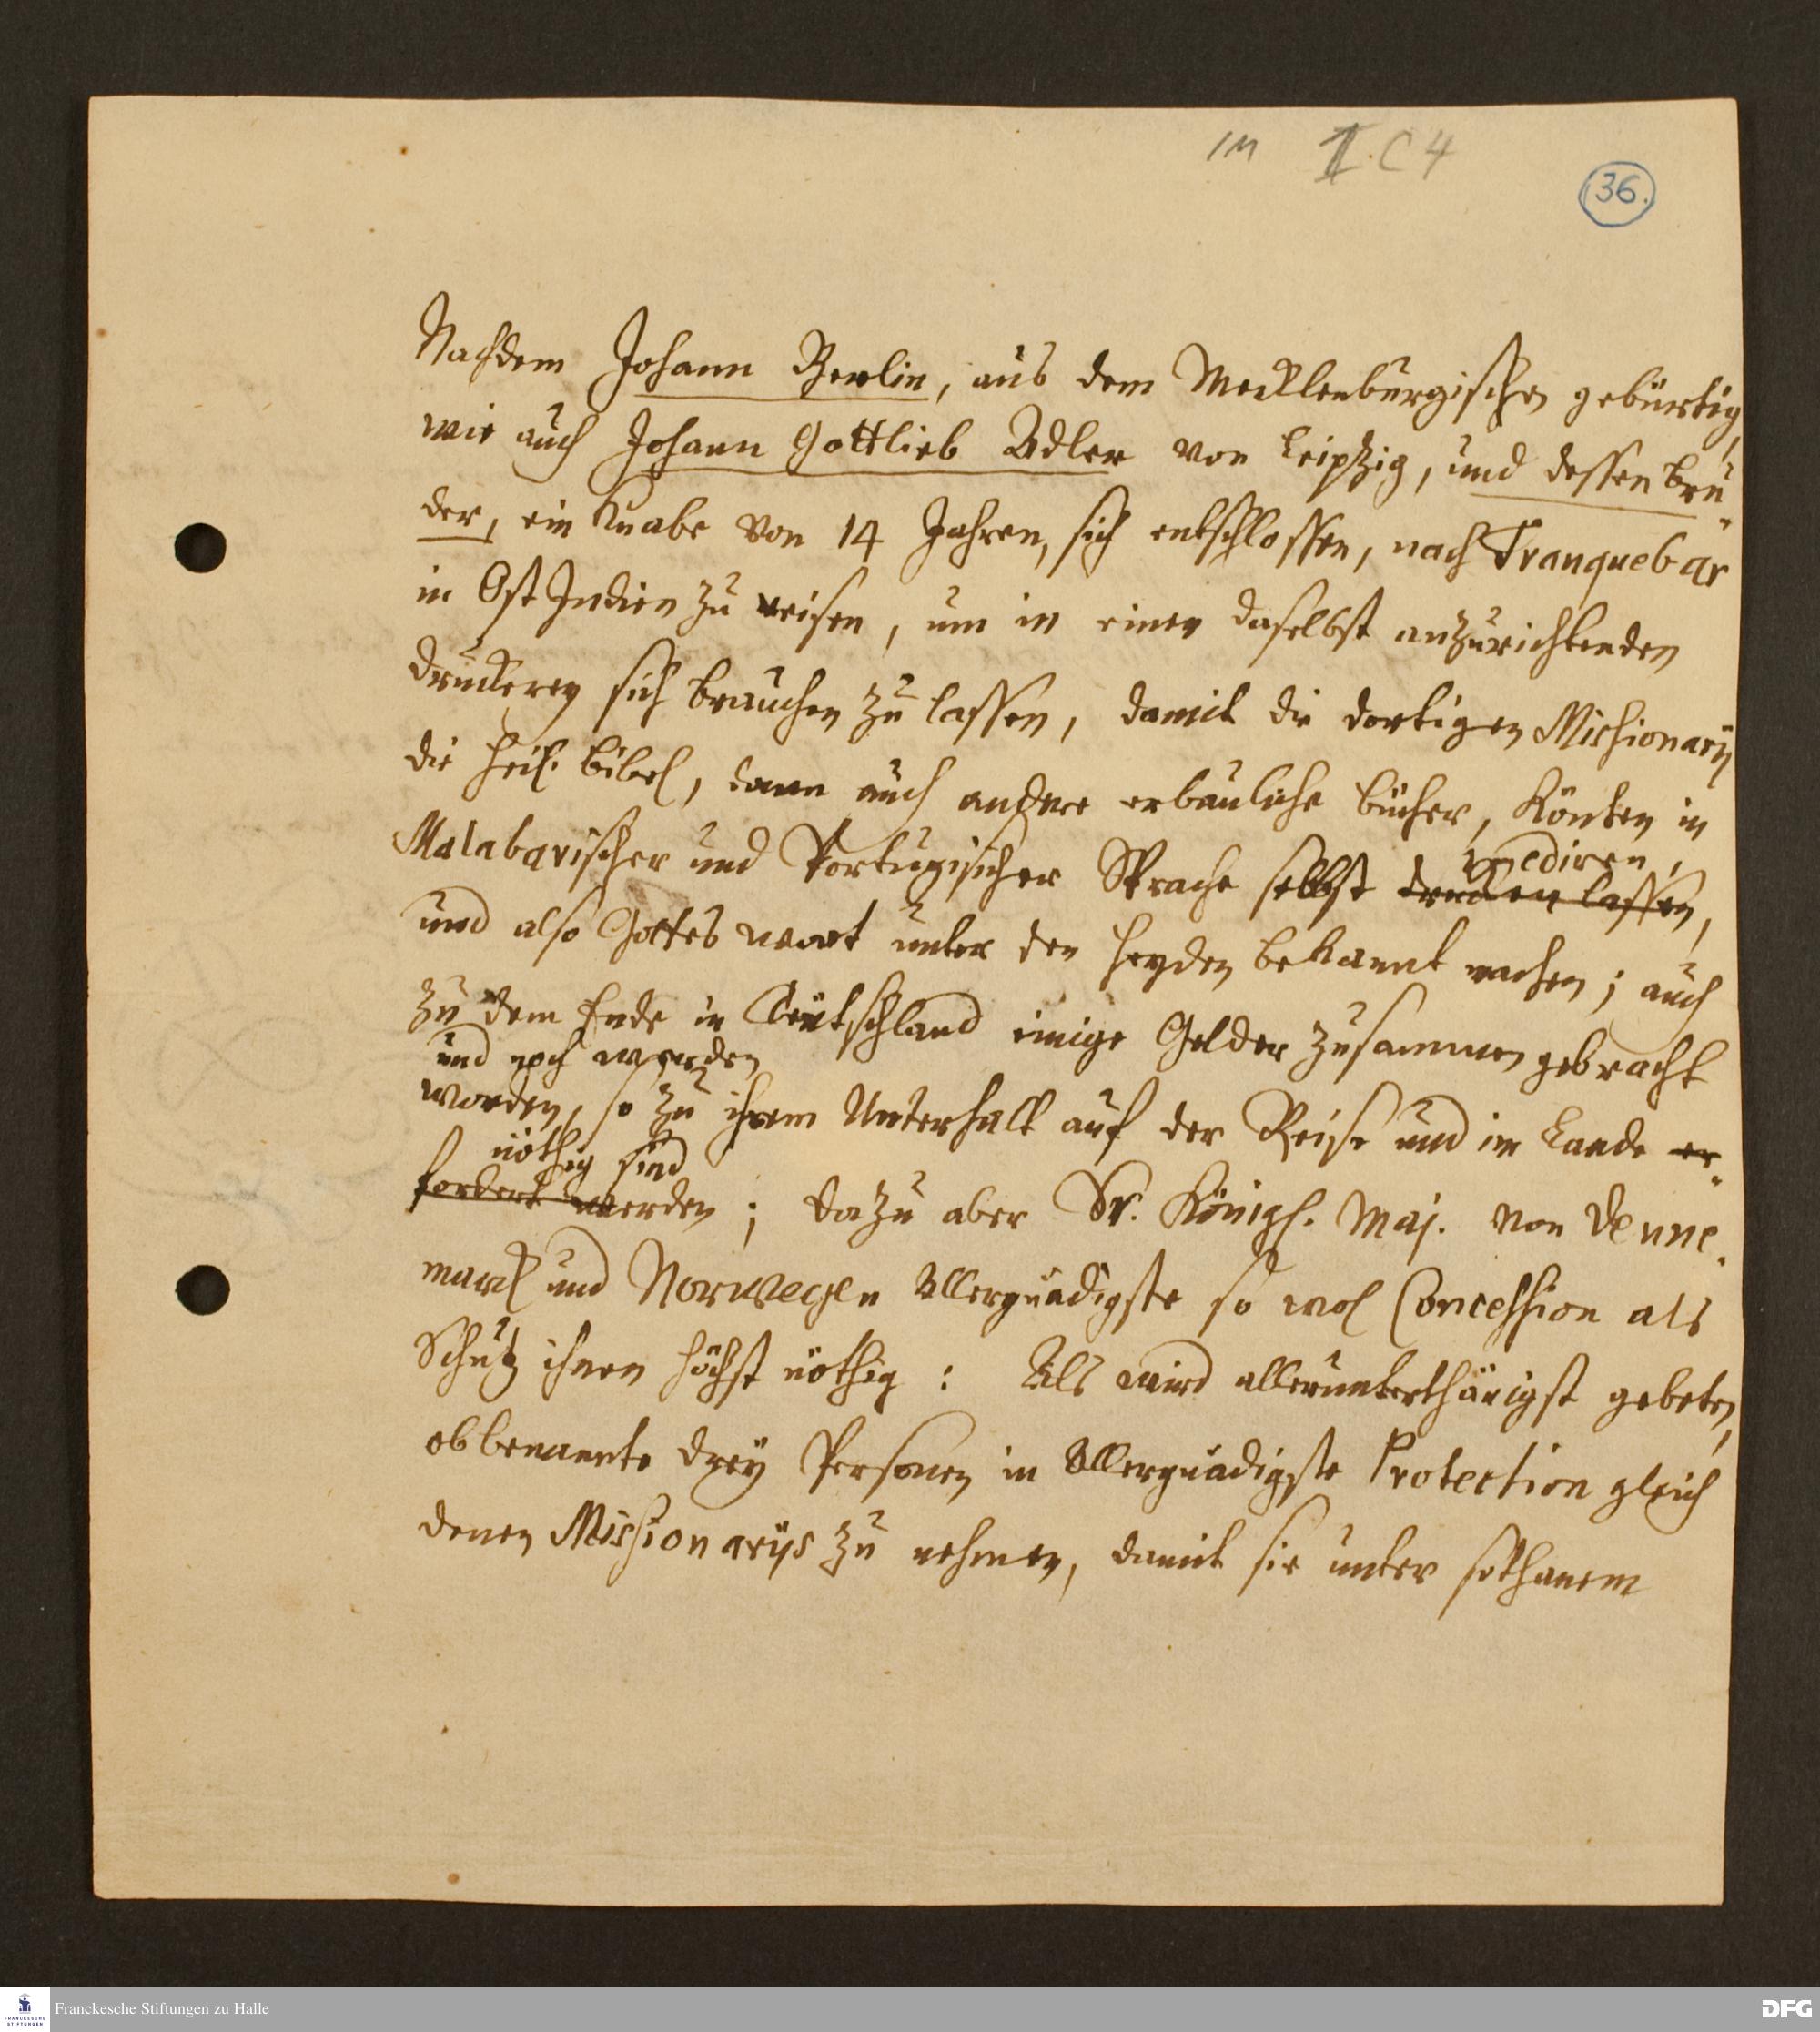 1M I C 4
36.
Nachdem Johann Berlin, aus dem Mecklenburgischen gebürtig,
wie auch Johann Gottlieb Adler von Leipzig, und dessen Bru-
der, ein Knabe von 14 Jahren, sich entschlossen, nach Tranquebar
in Ost Indien zu reisen, um in einer daselbst anzurichtenden
Druckerey sich brauchen zu lassen, damit die dortigen Missionarii
die Heil. Bibel, dann auch andere erbauliche Bücher, könten in
Malabarischer und Portugisischer Sprache selbst drucken lassen,
ediren,
und also Gottes wort unter den Heyden bekannt machen; auch
zu dem Ende in Teütschland einige Gelder zusammen gebracht
und noch werden
worden, so zu ihrem Unterhalt auf der Reise und im Lande er-
nöthig sind
fordert werden; dazu aber Sr. Königl. Maj. von Denne-
marck und Norwegen Allergnädigste so wol Concession als
Schutz ihnen höchst nöthig: Als wird allerunterthänigst gebeten,
obbenannte drey Personen in Allergnädigste Protection gleich
denen Missionariis zu nehmen, damit sie unter sothanem
Franckesche Stiftungen zu Halle
DFG
FRANCKESCHE
STIFTUNGEN